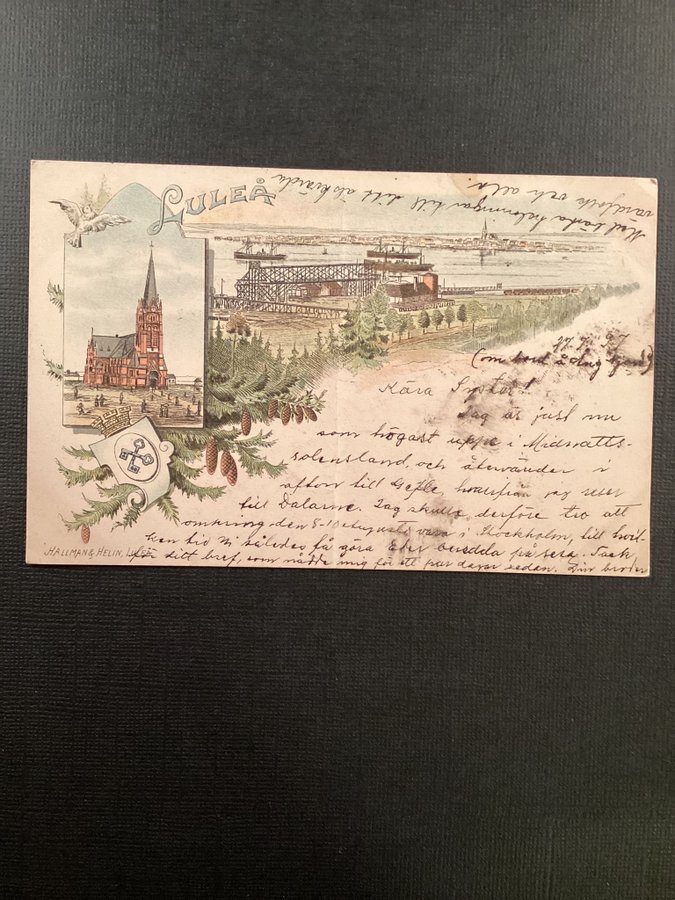 LULEÅ
Med bästa helsningar till ditt älskvärda
värdfolk och alla.
(om bord å
Kära Syster!
Jag är just nu
som högast uppe i Midnatts-
solensland, och återvänder i
afton till Gefle hvarifrån jag reser
till Dalarne. Jag skulle derföre tro att
omkring den 8-10 Augusti vara i Stockholm, till hvil-
ken tid Ni således få göra Eder beredda på resa. Tack
för ditt bref, som nådde mig för ett par dagar sedan. Din broder
HALLMAN & HELIN, LULEÅ